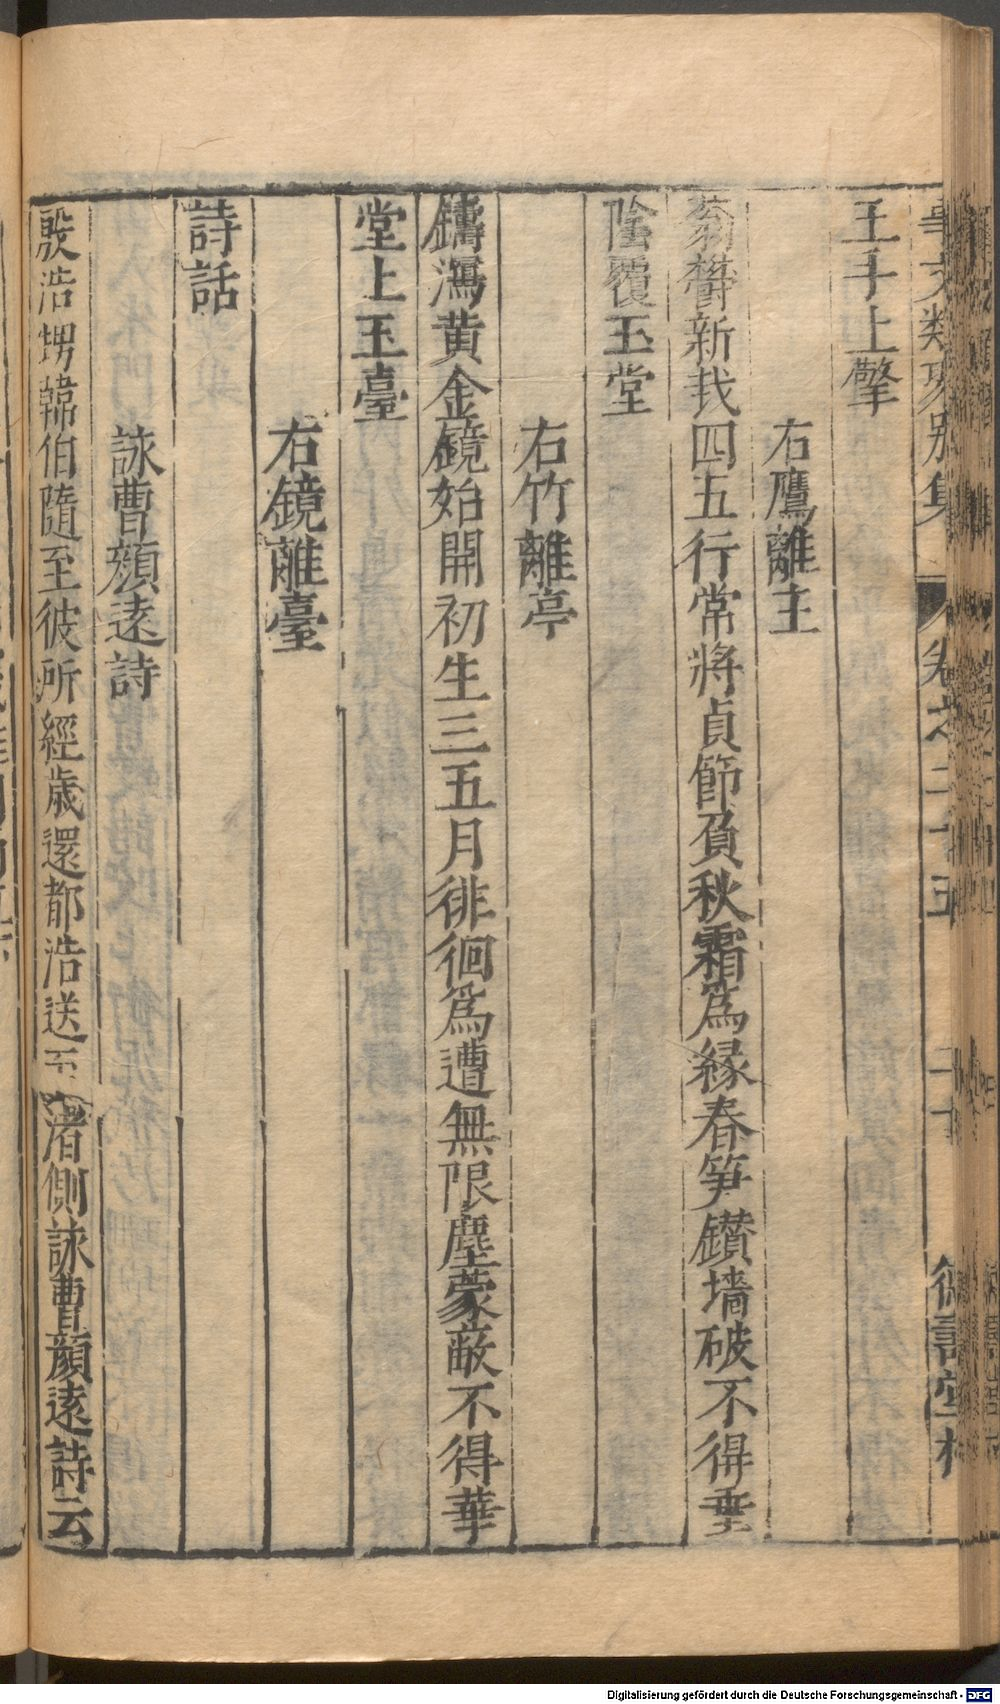 事文類聚別集 卷之二十五 二十 德壽堂梓
王手上擎
右鷹離主
蓊欝新栽四五行常將貞節負秋霜為緣春笋鑚墻破不得垂
陰覆玉堂
右竹離亭
鑄瀉黃金鏡始開初生三五月徘徊為遭無限塵蒙蔽不得華
堂上玉臺
右鏡離臺
詩話
詠曹顏遠詩
殷浩甥韓伯隨至彼所經歲還都浩送至渚側詠曹顏遠詩云
Digitalisierung gefördert durch die Deutsche Forschungsgemeinschaft - DFG